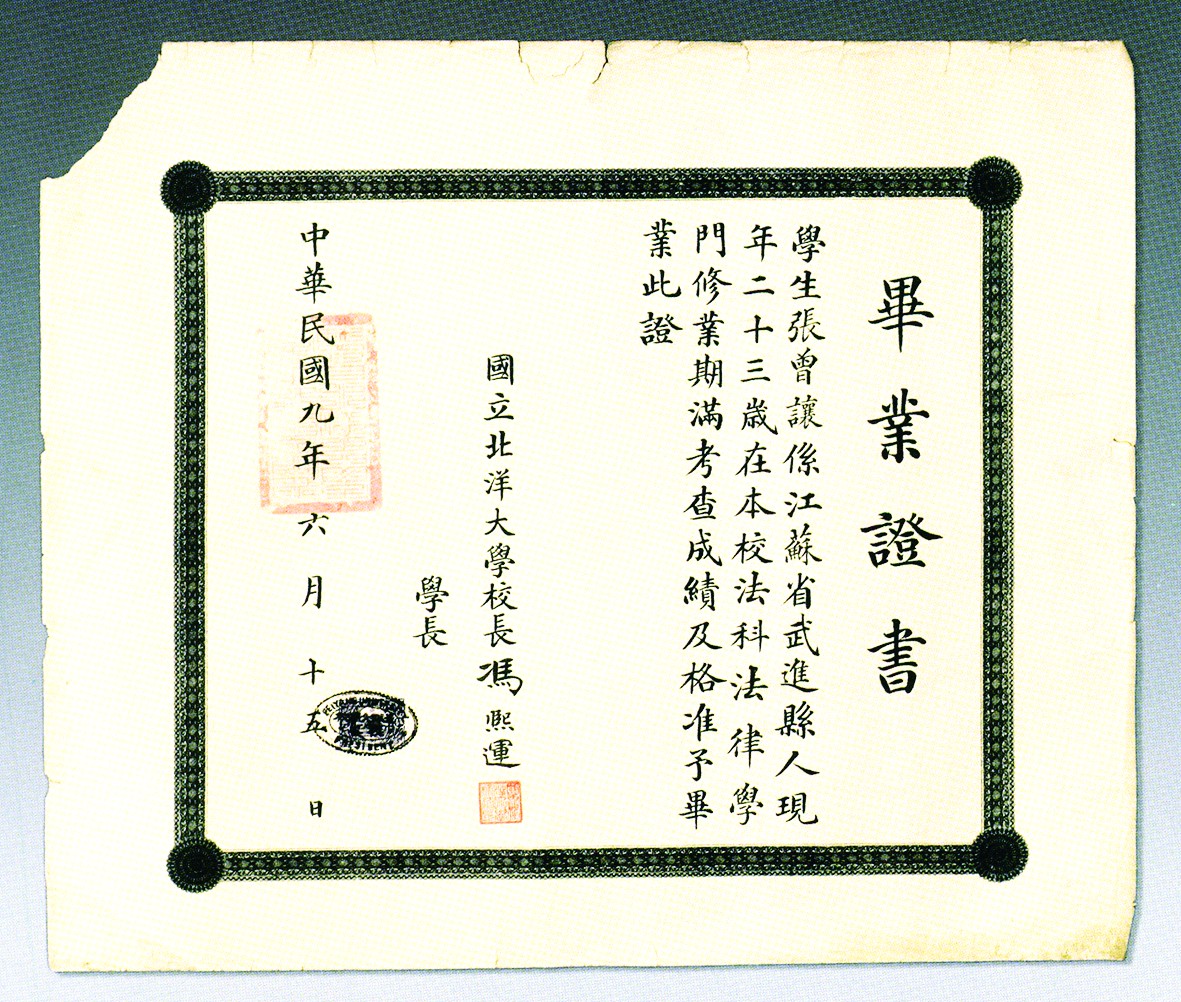 畢業證書
學生張曾讓係江蘇省武進縣人現
年二十三歲在本校法科法律學
門修業期滿考查成績及格准予畢
業此證
國立北洋大學校長馮熙運
學長
中華民國九年六月十五日
PEIYANG UNIVERSITY
PRESIDENT